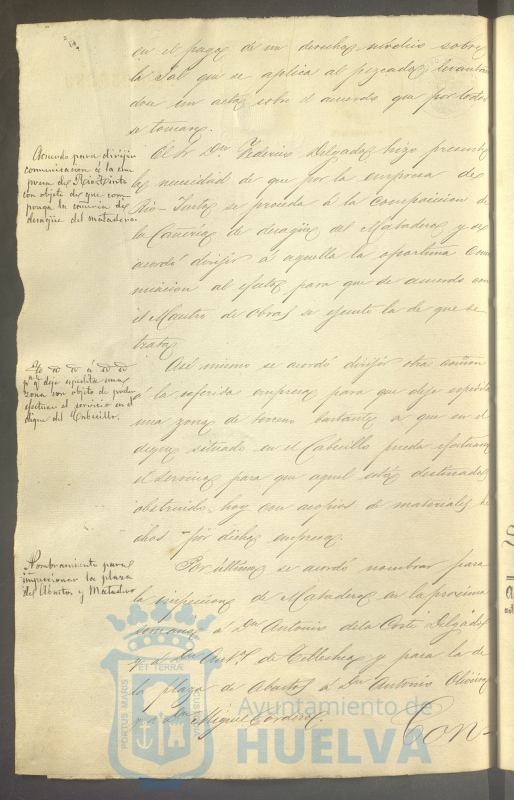 en el pago de un derecho módico sobre
la Sal que se aplica al pescado, levantan
dose un acta sobre el acuerdo que por todos
se tomare.
Acuerdo para dirigir
comunicacion á la em
presa de Rio-Tinto
con objeto de que com
ponga la cañeria de
desagüe del matadero.
El Sr. Dn. Federico Delgado hizo presente
la necesidad de que por la empresa de
Rio-Tinto se proceda á la composicion de
la Cañeria de desagüe del Matadero y se
acordó dirigir á aquella la oportuna comu
nicacion al efecto para que de acuerdo con
el Maestro de Obras se ejecute la de que se
trata.
pa. qe. deje espedita una
zona con objeto de poder
efectuar el servicio en el
dique del Cabecillo.
Asi mismo se acordó dirigir otra comon.
á la referida empresa para que deje espedita
una zona de terreno bastante a que en el
dique situado en el Cabecillo pueda efectuarse
el servicio para que aquel está destinado
obstruido hoy con acopios de materiales he
chos por dicha empresa.
Nombramiento para
inspeccionar la plaza
de Abastos y Matadero
Por último se acordó nombrar para
la inspeccion de Matadero en la proxima
semana á Dn. Antonio de la Corte Delgado
y á Dn. Anto. de Tellechea y para la de
la plaza de Abastos á Dn. Antonio Oliveira
y á Dn. Miguel Cordero.
Con-
PORTUS MARIS
ET TERRÆ
CUSTODIA
Ayuntamiento de
HUELVA